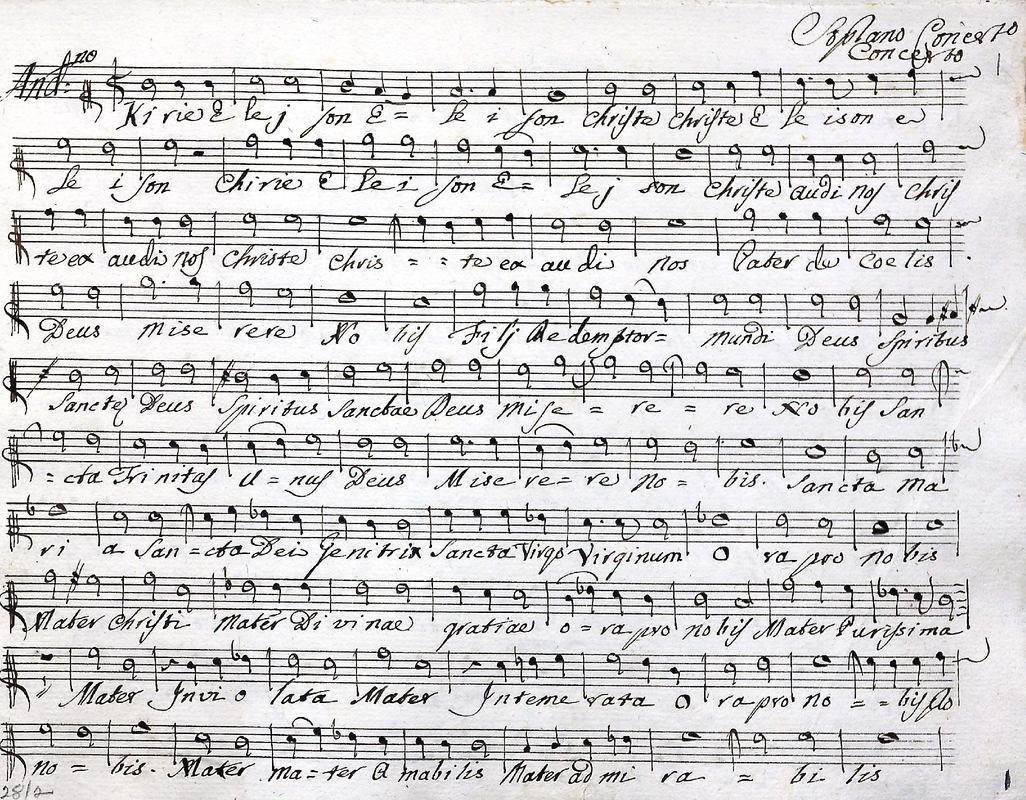 Soprano Concerto
Concerto
1
And:no
Kirie E lej son E = le i son Christe Christe E le ison e
le i son Chirie E le i son E = le j son Christe audi nos Chris
te ex audi nos Christe Chris = = te ex au di nos Pater de Coe lis
Deus mise rere No bis Fi lj Redemptor = mundi Deus Spiritus
Sancte Deus Spiritus Sanctae Deus mise = re = re No bis San
= cta Trinitas U = nus Deus Mise re = re no = bis. Sancta ma
ri a San = cta Dei Genitrix Sancta Virgo Virginum O ra pro no bis
Mater Christi Mater Di vi nae gratiae o = ra pro nobis Mater Purissima
Mater Invi o lata Mater Inteme rata O ra pro no = = bis
no = bis. Mater ma = ter A mabilis Mater ad mi ra = bi lis
28/2
1